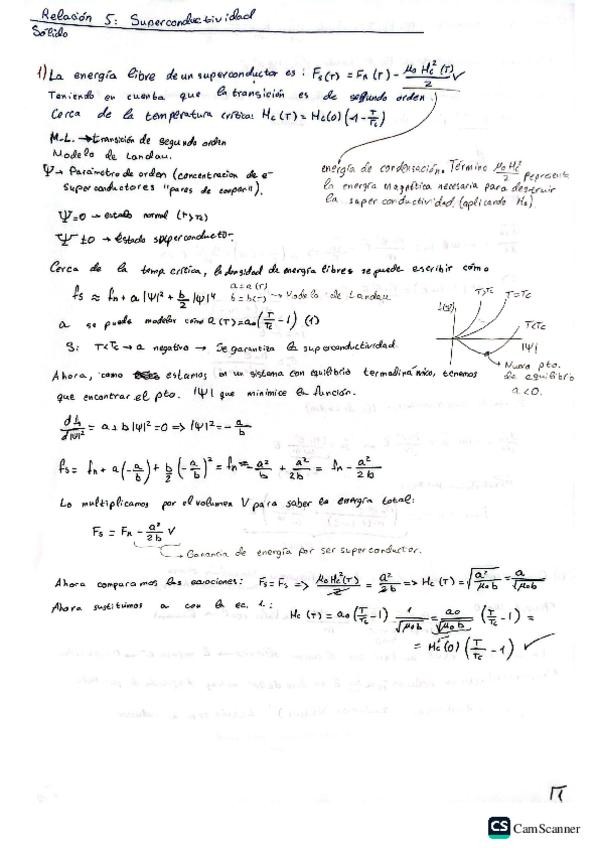 Relación 5: Superconductividad
Sólido
1) La energía libre de un superconductor es: Fs(T) = Fn(T) - μ0 Hc²(T)/2 ✓
Teniendo en cuenta que la transición es de segundo orden.
Cerca de la temperatura crítica: Hc(T) = Hc(0)(1 - T/Tc)
M.L. → transición de segundo orden
Modelo de Landau.
Ψ → Parámetro de orden (concentración de e-
superconductores "pares de cooper").
energía de condensación. Término μ0 Hc²/2 representa
la energía magnética necesaria para destruir
la superconductividad. (aplicando Hc).
Ψ=0 → estado normal (T>Tc)
Ψ≠0 → Estado superconductor.
Cerca de la temp. crítica, la densidad de energía libres se puede escribir cómo
fs ≈ fn + a |Ψ|² + b/2 |Ψ|⁴ a = a(T) b = b(~) → Modelo de Landau
a se puede modelar como a(T) = a0(T/Tc - 1) (1)
Si T<Tc → a negativo → Se garantiza la superconductividad.
T>Tc T=Tc
T<Tc
|Ψ|
Nuevo pto.
de equilibrio
a<0.
Ahora, como estamos en un sistema con equilibrio termodinámico, tenemos
que encontrar el pto. |Ψ| que minimice la función.
dfs/d|Ψ|² = a + b|Ψ|² = 0 => |Ψ|² = - a/b
fs = fn + a(-a/b) + b/2 (-a/b)² = fn - a²/b + a²/2b = fn - a²/2b
Lo multiplicamos por el volumen V para saber la energía total:
Fs = Fn - a²/2b V
→ Ganancia de energía por ser superconductor.
Ahora comparamos las ecuaciones: Fs = Fs => μ0 Hc²(T)/2 = a²/2b => Hc(T) = √(a²/μ0 b) = a/√(μ0 b)
Ahora sustituimos a con la ec. 1.: Hc(T) = a0 (T/Tc - 1) 1/√(μ0 b) = a0/√(μ0 b) (T/Tc - 1) =
= Hc(0) (T/Tc - 1) ✓
CS CamScanner